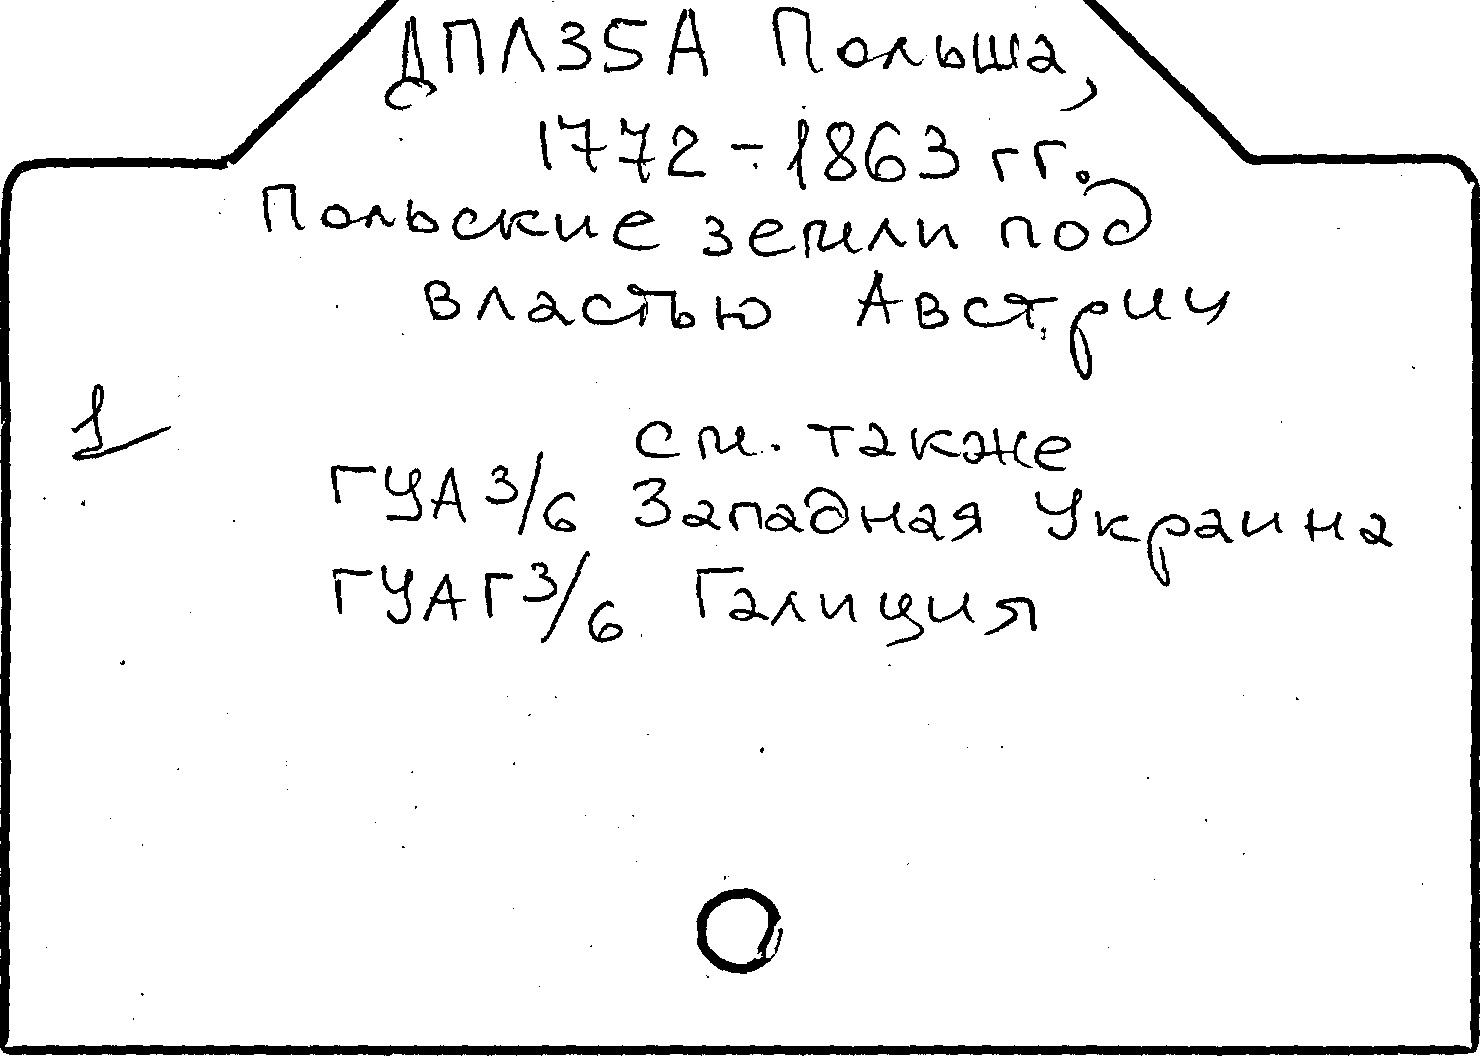 ДПЛ35А Польша,
1772-1863 гг.
Польские земли под
властью Австрии
1
см. также
ГУА3/6 Западная Украина
ГУАГ3/6 Галиция